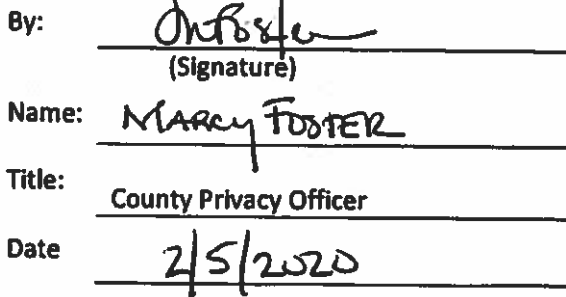 By:
(Signature)
Name: MARCY FOSTER
Title: County Privacy Officer
Date 2/5/2020